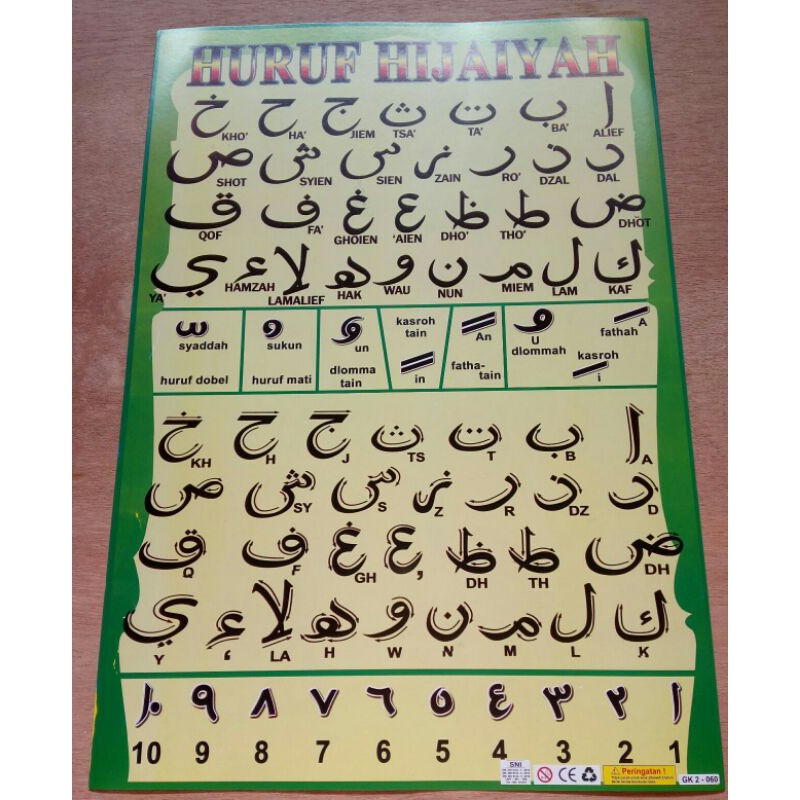 HURUF HIJAIYAH
ا ب ت ث ج ح خ
ALIEF BA' TA' TSA' JIEM HA' KHO'
د ذ ر ز س ش ص
DAL DZAL RO' ZAIN SIEN SYIEN SHOT
ض ط ظ ع غ ف ق
DHŎT THO' DHO' 'AIEN GHOIEN FA' QOF
ك ل م ن و ه لا ء ي
KAF LAM MIEM NUN WAU HAK LAMALIEF HAMZAH YA'
syaddah
huruf dobel
sukun
huruf mati
un
dlomma
tain
kasroh
tain
in
An
fatha-
tain
U
dlommah
A
fathah
kasroh
i
ا ب ت ث ج ح خ
A B T TS J H KH
د ذ ر ز س ش ص
D DZ R Z S SY
ض ط ظ ع غ ف ق
DH TH DH , GH F Q
ك ل م ن و ه لا ء ي
K L M N W H LA ‘ Y
١ ٢ ٣ ٤ ٥ ٦ ٧ ٨ ٩ ١٠
1 2 3 4 5 6 7 8 9 10
SNI
CE
Peringatan !
GK 2 - 060